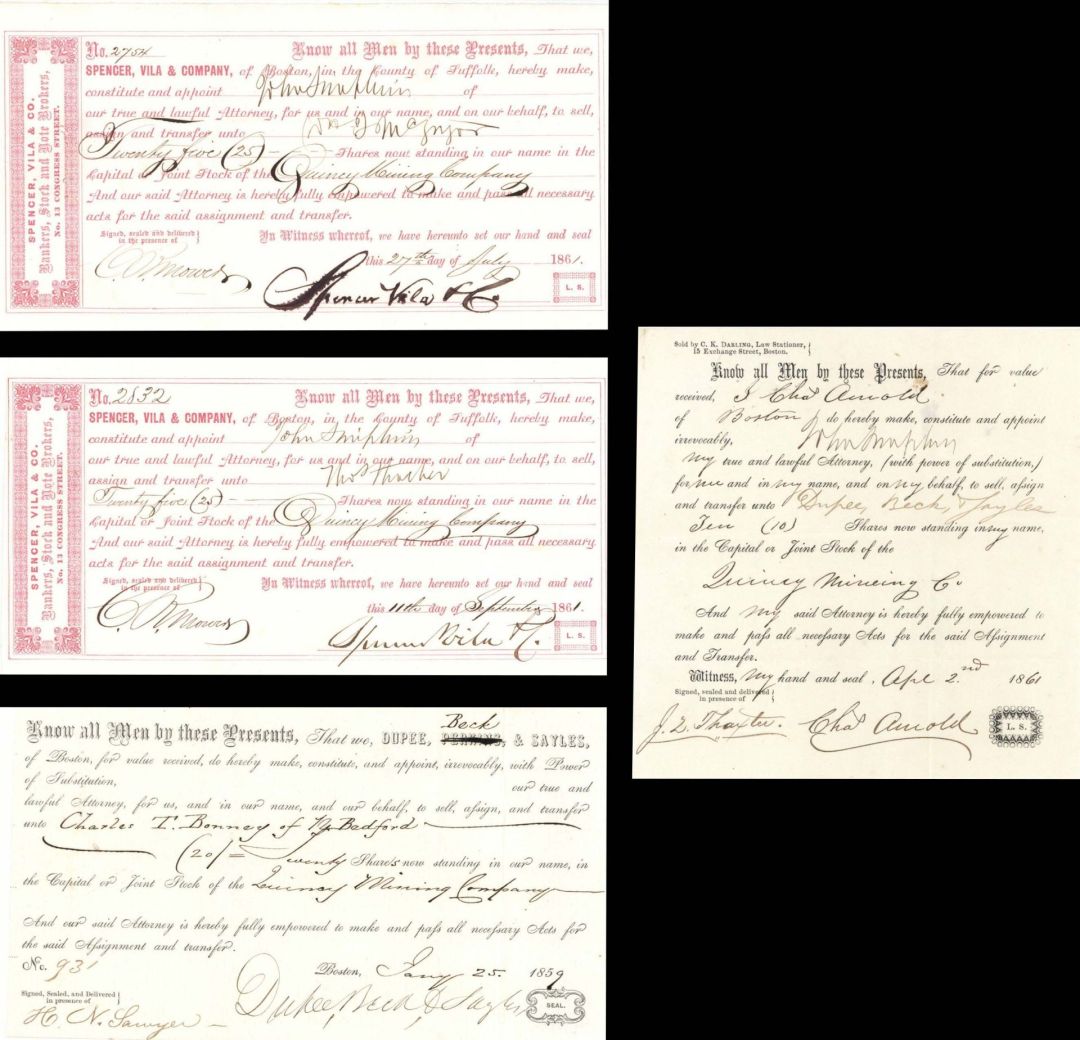 SPENCER, VILA & CO.
Bankers, Stock and Note Brokers,
No. 13 CONGRESS STREET.
No. 2754 Know all Men by these Presents, That we,
SPENCER, VILA & COMPANY, of Boston, in the County of Suffolk, hereby make,
constitute and appoint John Simpkins of
our true and lawful Attorney, for us and in our name, and on our behalf, to sell,
assign and transfer unto
Twenty five (25) — Shares now standing in our name in the
Capital or Joint Stock of the Quincy Mining Company
And our said Attorney is hereby fully empowered to make and pass all necessary
acts for the said assignment and transfer.
Signed, sealed and delivered
in the presence of
In Witness whereof, we have hereunto set our hand and seal
this 27th day of July 1861.
Spencer Vila & Co.
L. S.
SPENCER, VILA & CO.
Bankers, Stock and Note Brokers,
No. 13 CONGRESS STREET.
No. 2832 Know all Men by these Presents, That we,
SPENCER, VILA & COMPANY, of Boston, in the County of Suffolk, hereby make,
constitute and appoint John Simpkins of
our true and lawful Attorney, for us and in our name, and on our behalf, to sell,
assign and transfer unto Thos Thacher
Twenty five (25) — Shares now standing in our name in the
Capital or Joint Stock of the Quincy Mining Company
And our said Attorney is hereby fully empowered to make and pass all necessary
acts for the said assignment and transfer.
Signed, sealed and delivered
in the presence of
In Witness whereof, we have hereunto set our hand and seal
this 11th day of September 1861.
Spencer Vila & Co.
L. S.
Beck
Know all Men by these Presents, That we, DUPEE, PERKINS, & SAYLES,
of Boston, for value received, do hereby make, constitute, and appoint, irrevocably, with Power
of Substitution, our true and
lawful Attorney, for us, and in our name, and our behalf, to sell, assign, and transfer
unto Charles T. Bonney of N. Bedford
(20) = Twenty Shares now standing in our name, in
the Capital or Joint Stock of the Quincy Mining Company
And our said Attorney is hereby fully empowered to make and pass all necessary Acts for
the said Assignment and transfer.
No. 931 Boston, Jany 25. 1859
Signed, Sealed, and Delivered
in presence of
H. N. Sawyer
Dupee, Beck & Sayles
SEAL.
Sold by C. K. DARLING, Law Stationer,
15 Exchange Street, Boston.
Know all Men by these Presents, That for value
received, I Chas Arnold
of Boston do hereby make, constitute and appoint
irrevocably, John Simpkins
my true and lawful Attorney, (with power of substitution,)
for me and in my name, and on my behalf, to sell, assign
and transfer unto Dupee, Beck, & Sayles
Ten (10) Shares now standing in my name,
in the Capital or Joint Stock of the
Quincy Mineing Co
And my said Attorney is hereby fully empowered to
make and pass all necessary Acts for the said Assignment
and Transfer.
Witness, my hand and seal, Apl 2nd 1861
Signed, sealed and delivered
in presence of
J. L. Thaxter. Chas Arnold
L. S.